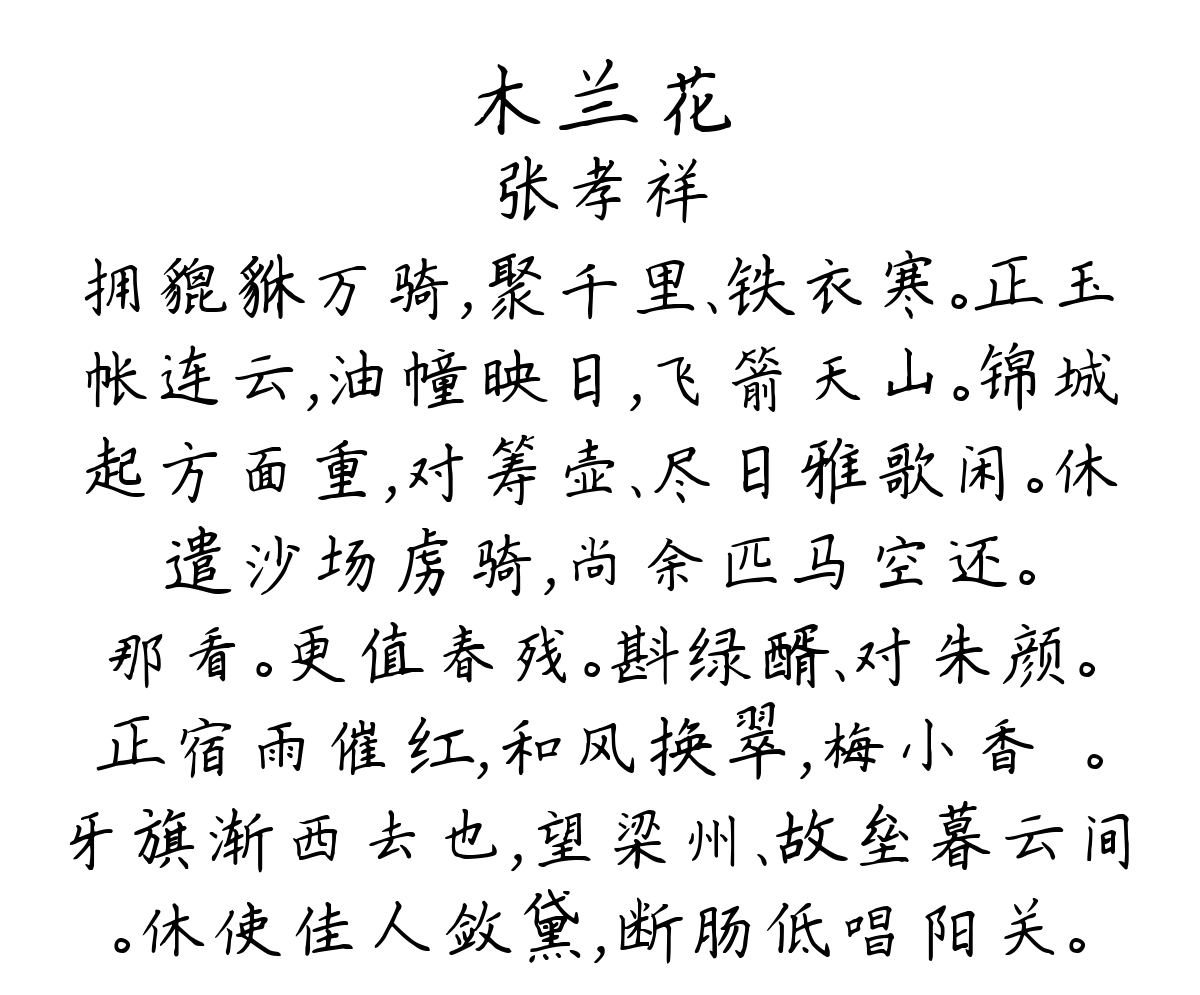 木兰花
张孝祥
拥貔貅万骑,聚千里、铁衣寒。正玉
帐连云,油幢映日,飞箭天山。锦城
起方面重,对筹壶、尽日雅歌闲。休
遣沙场虏骑,尚余匹马空还。
那看。更值春残。斟绿醑、对朱颜。
正宿雨催红,和风换翠,梅小香 。
牙旗渐西去也,望梁州、故垒暮云间
。休使佳人敛黛,断肠低唱阳关。